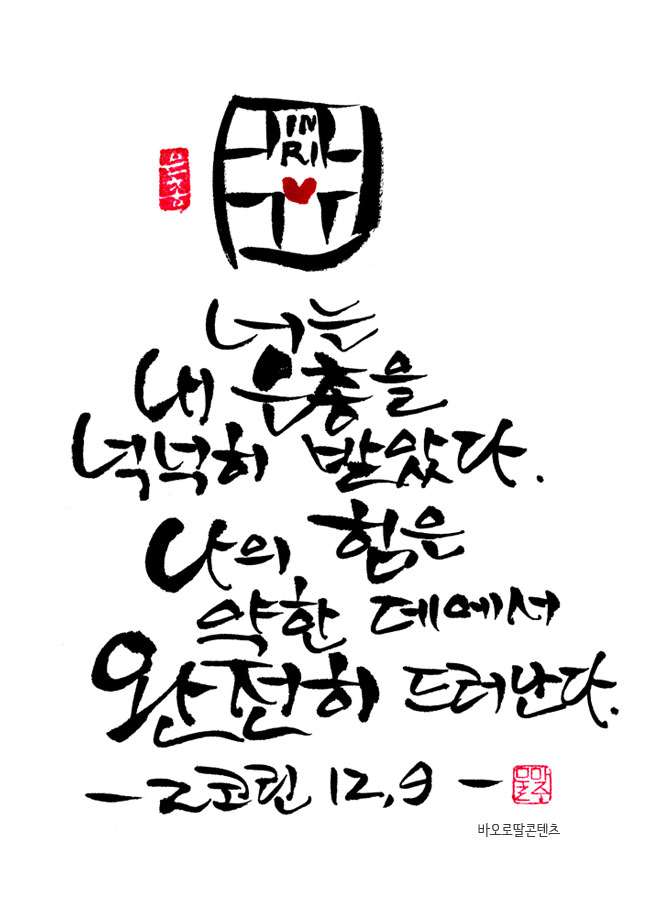 IN
RI
은총
너는
내 은총을
넉넉히 받았다.
나의 힘은
약한 데에서
완전히 드러난다.
-2코린 12,9-
바오로딸콘텐츠